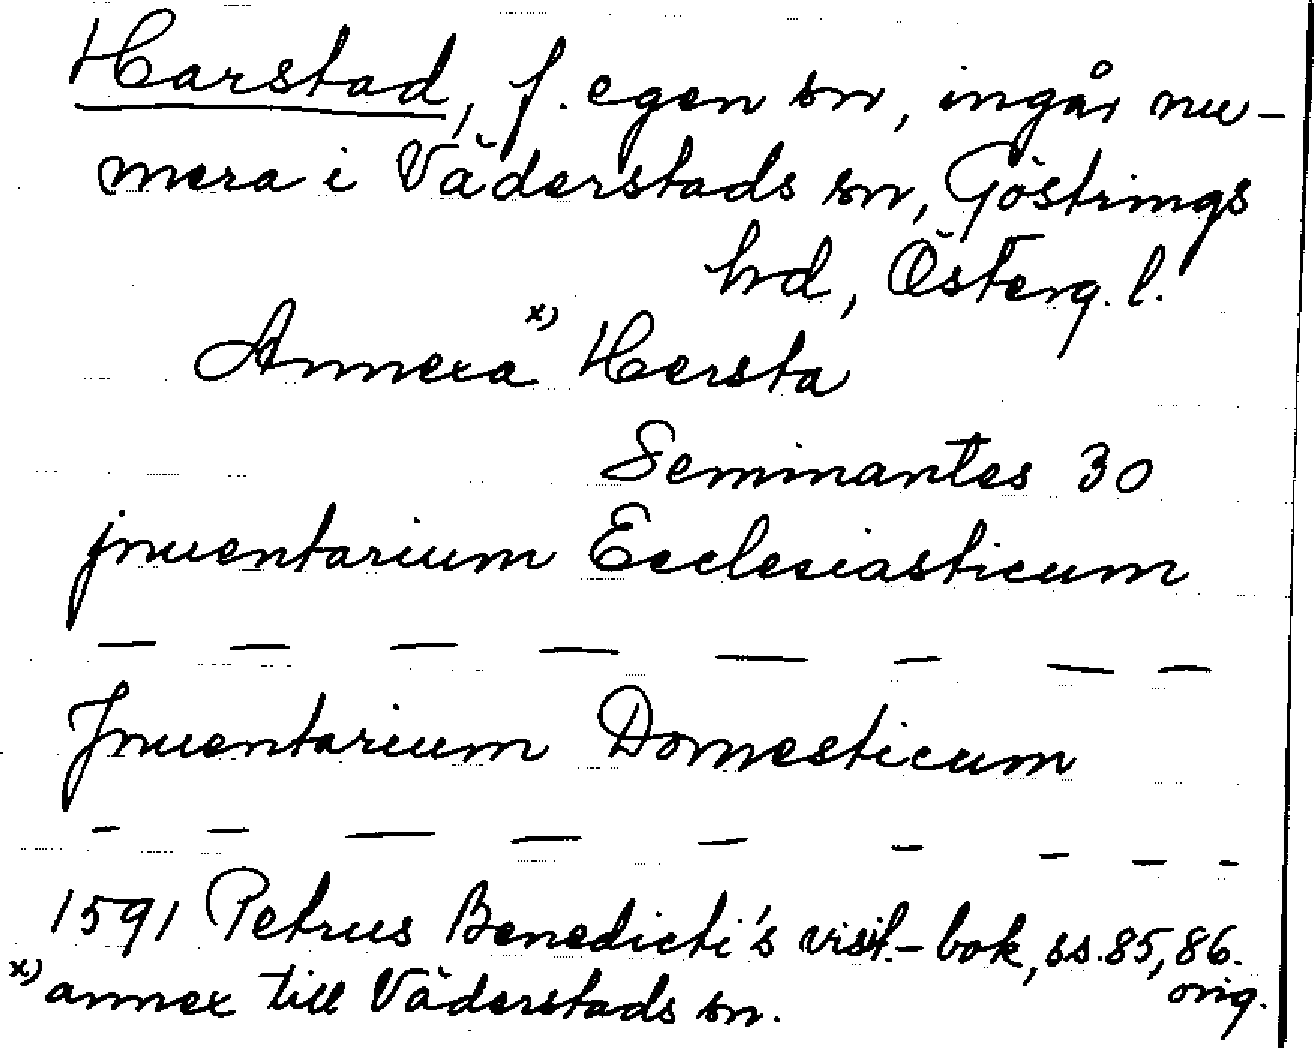 Harstad, f. egen sn, ingår nu-
mera i Väderstads sn, Göstrings
hrd, Österg. l.
Annexa x) Hersta
Seminantes 30
jnuentarium Ecclesiasticum
— — — — — — — —
Jnuentarium Domesticum
- - — — - - - - -
1591 Petrus Benedicti's visit.-bok, ss. 85, 86.
orig.
x) annex till Väderstads sn.